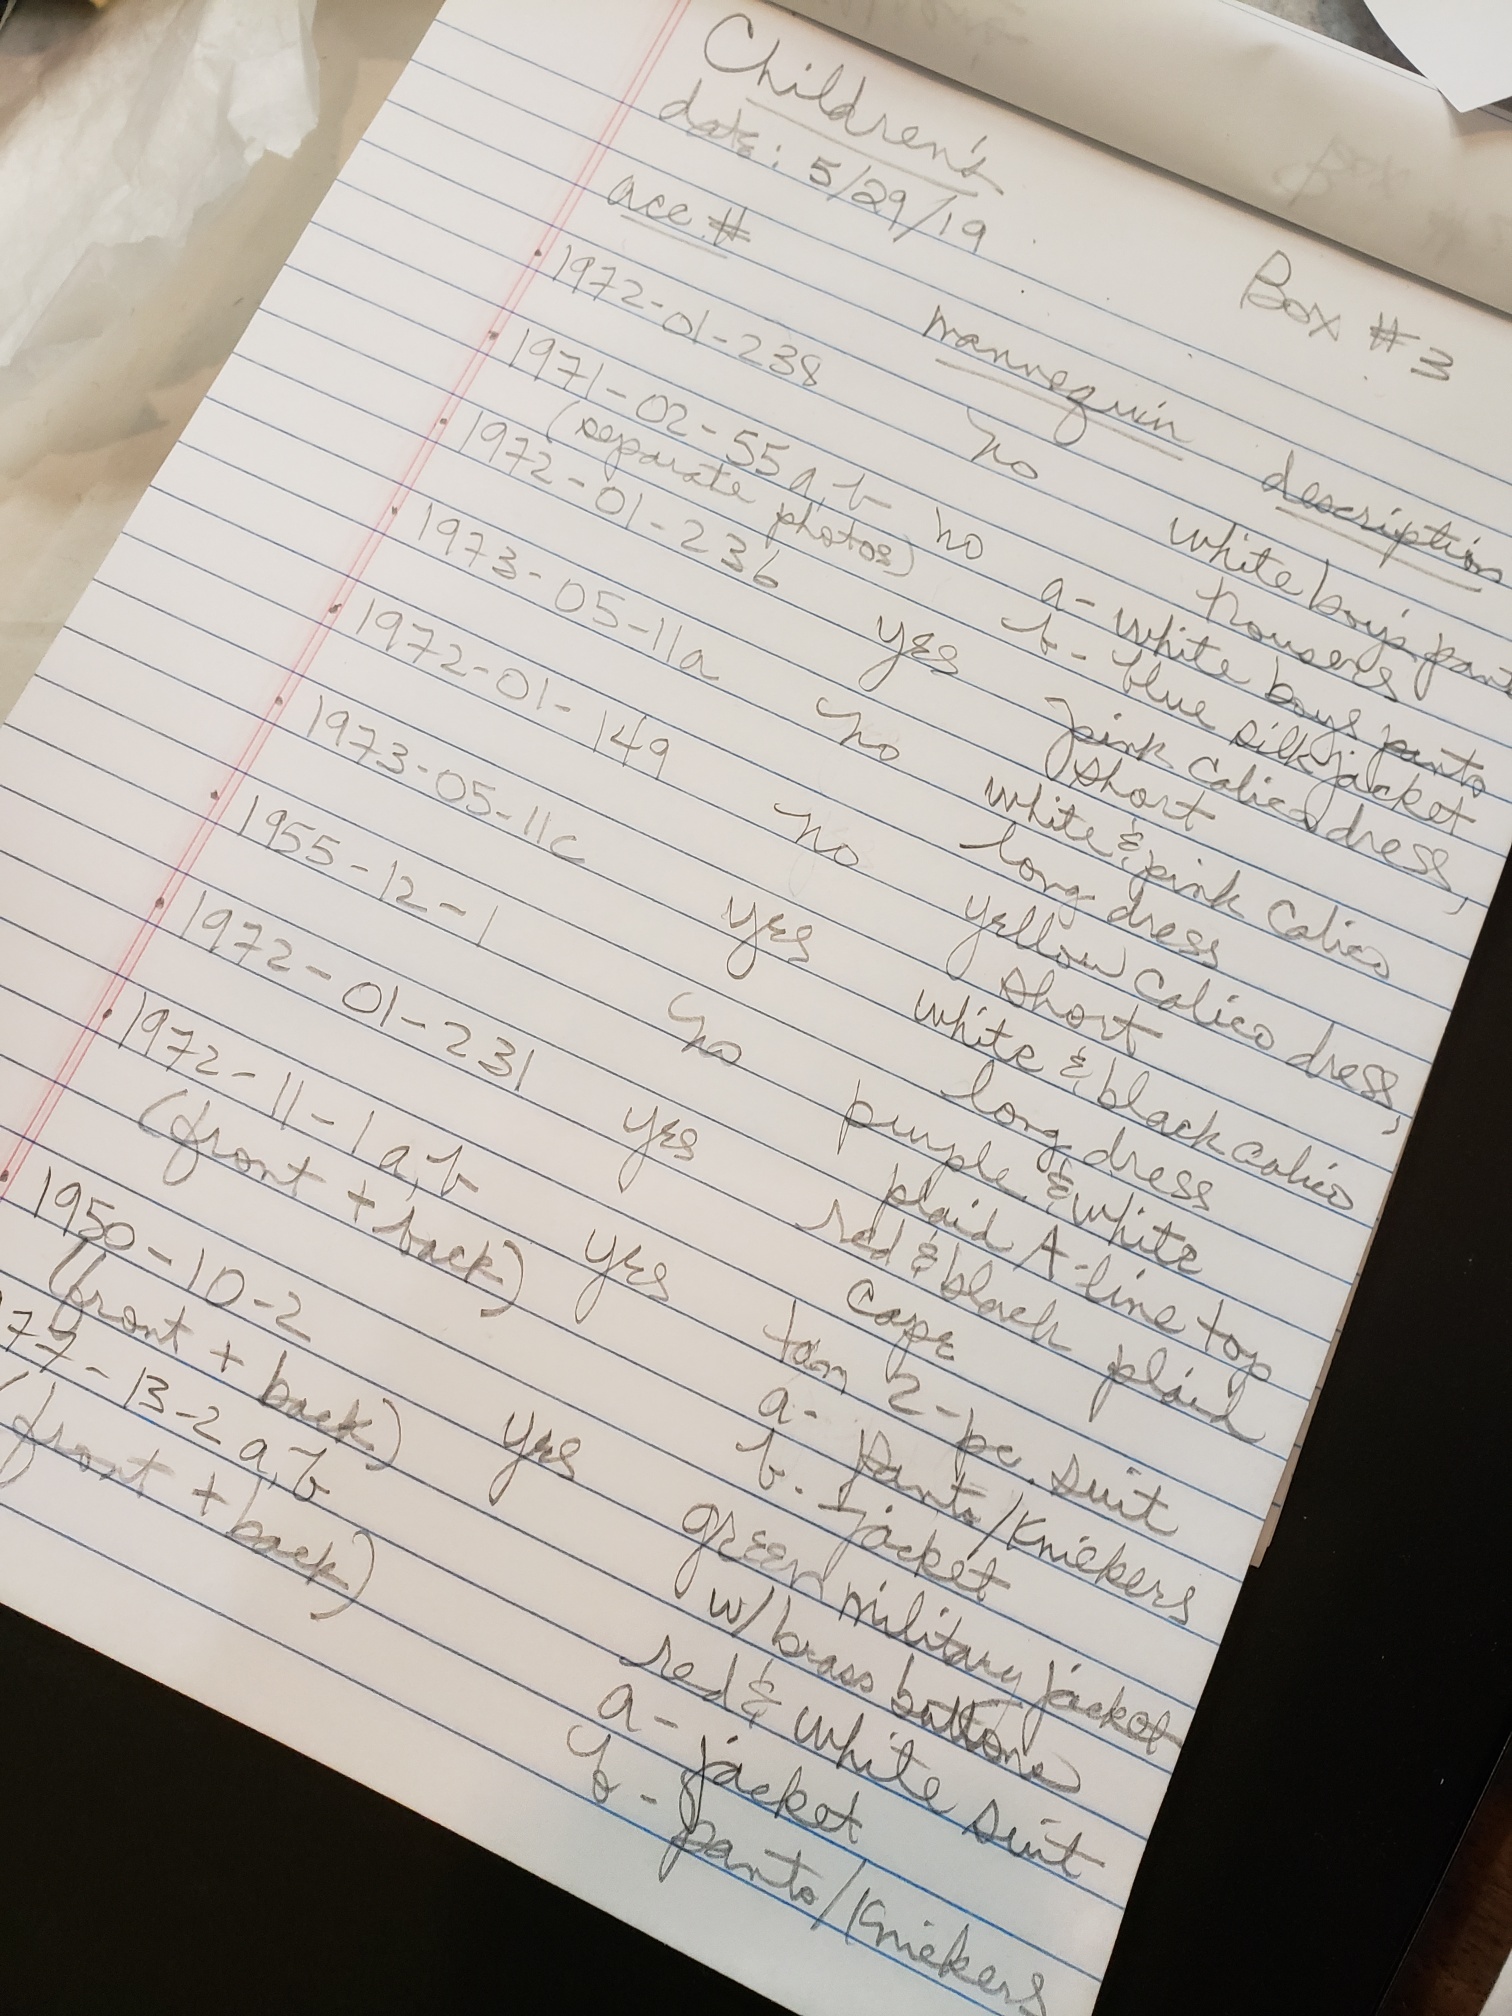 Children's
date: 5/29/19
Box #3
acc.# mannequin description
1972-01-238 no white boy's pants
trousers
1971-02-55a,b no a- white boys pants
(separate photos) b- blue silk jacket
1972-01-236 yes pink calico dress,
short
1973-05-11a no white & pink calico
long dress
1972-01-149 no yellow calico dress,
short
1973-05-11c yes white & black calico
long dress
1955-12-1 no purple & white
plaid A-line top
1972-01-231 yes red & black plaid
cape
1972-11-1a,b yes tan 2-pc. suit
(front + back) a- pants/Knickers
b- jacket
1950-10-2 yes green military jacket
(front + back) w/ brass buttons
-13-2 a,b red & white suit
(front + back) a- jacket
b- pants/Knickers